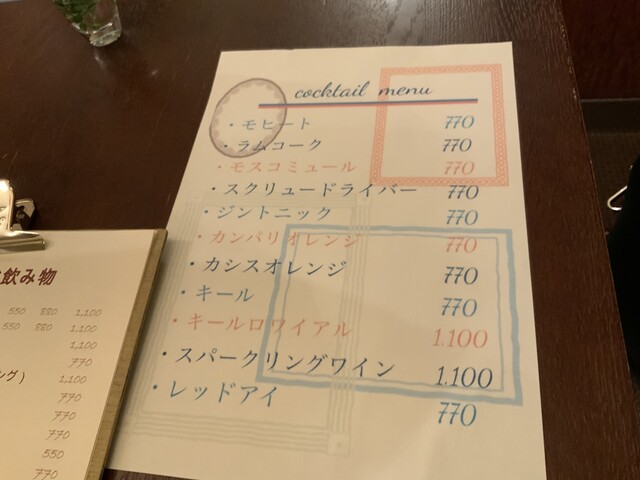 cocktail menu
・モヒート 770
・ラムコーク 770
・モスコミュール 770
・スクリュードライバー 770
・ジントニック 770
・カンパリオレンジ 770
・カシスオレンジ 770
・キール 770
・キールロワイアル 1.100
・スパークリングワイン 1.100
・レッドアイ 770
飲み物
550 880 1,100
550 880 1,100
1,100
770
ング) 1,100
770
770
770
550
770